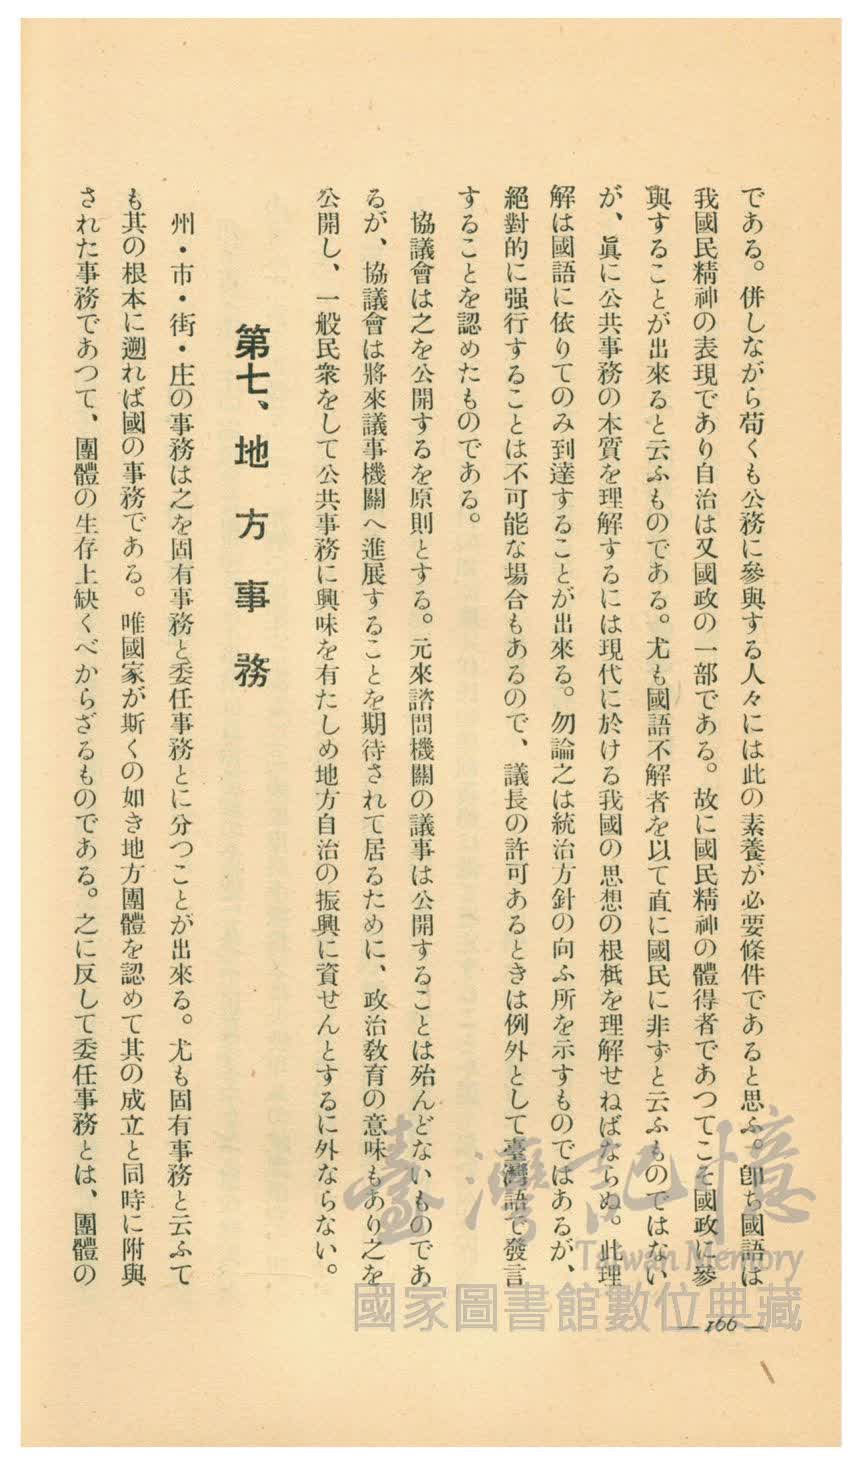 である。併しながら苟くも公務に參與する人々には此の素養が必要條件であると思ふ。卽ち國語は
我國民精神の表現であり自治は又國政の一部である。故に國民精神の體得者であつてこそ國政に參
與することが出來ると云ふものである。尤も國語不解者を以て直に國民に非ずと云ふものではない
が、眞に公共事務の本質を理解するには現代に於ける我國の思想の根柢を理解せねばならぬ。此理
解は國語に依りてのみ到達することが出來る。勿論之は統治方針の向ふ所を示すものではあるが、
絕對的に强行することは不可能な場合もあるので、議長の許可あるときは例外として臺灣語で發言
することを認めたものである。
協議會は之を公開するを原則とする。元來諮問機關の議事は公開することは殆んどないものであ
るが、協議會は將來議事機關へ進展することを期待されて居るために、政治敎育の意味もあり之を
公開し、一般民衆をして公共事務に興味を有たしめ地方自治の振興に資せんとするに外ならない。
第七、地方事務
州・市・街・庄の事務は之を固有事務と委任事務とに分つことが出來る。尤も固有事務と云ふて
も其の根本に遡れば國の事務である。唯國家が斯くの如き地方團體を認めて其の成立と同時に附與
された事務であつて、團體の生存上缺くべからざるものである。之に反して委任事務とは、團體の
— 166 —
臺灣記憶
Taiwan Memory
國家圖書館數位典藏